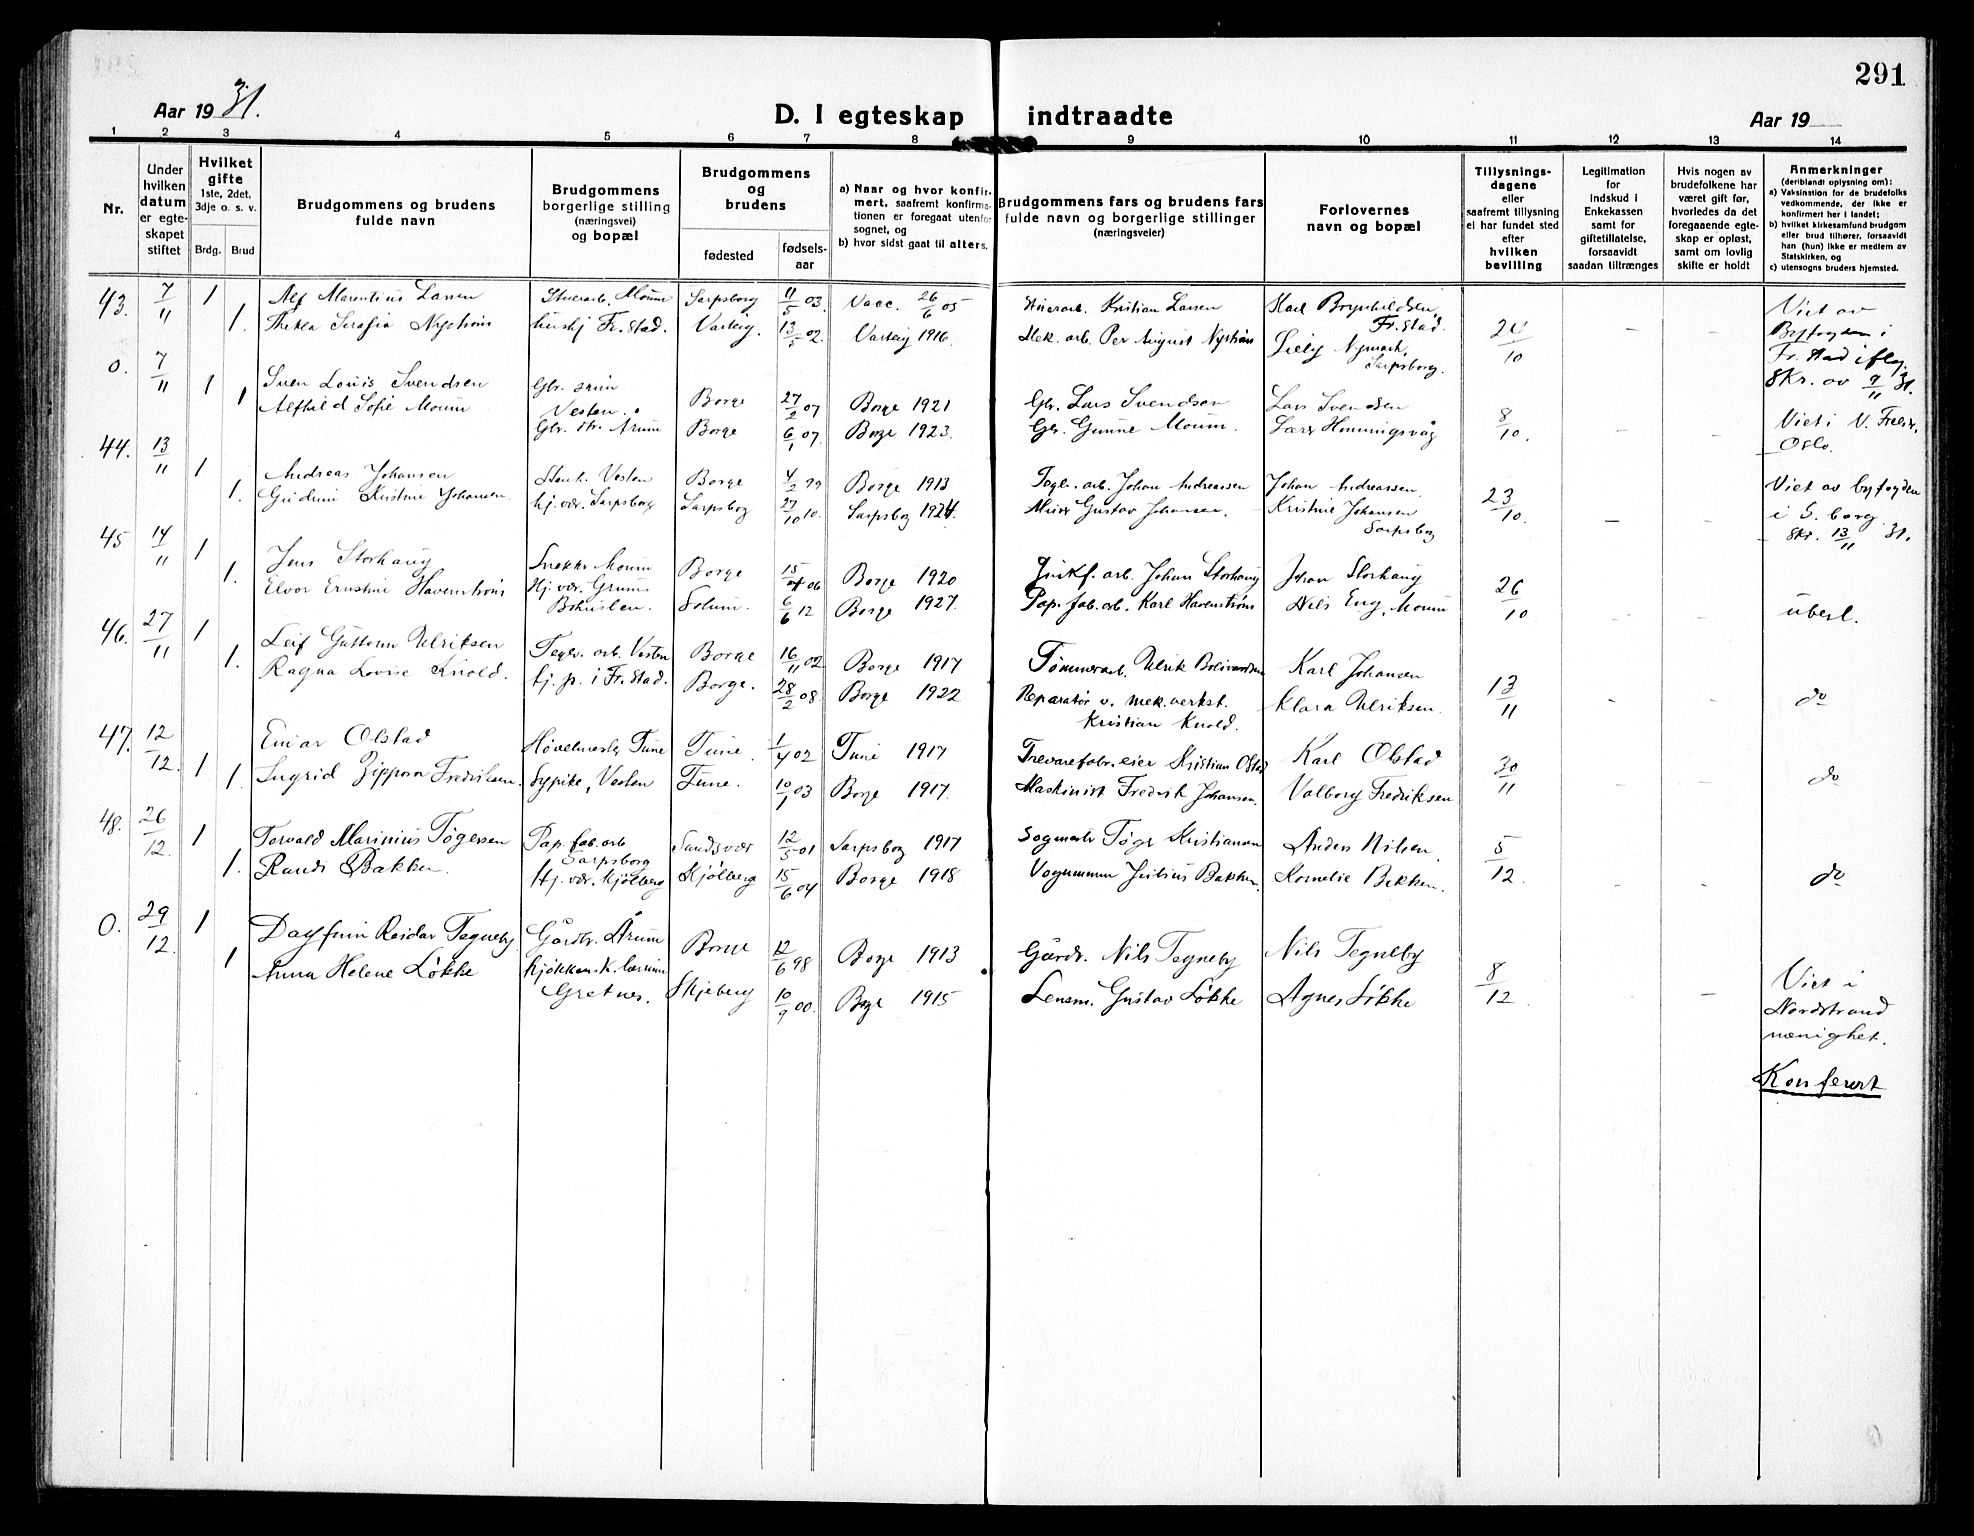 291
Aar 1931.
D. I egteskap indtraadte
Aar 19
1 2 3 4 5 6 7 8 9 10 11 12 13 14
Nr.
Under hvilken datum er egteskapet stiftet
Hvilket gifte
1ste, 2det, 3dje o. s. v.
Brdg. Brud
Brudgommens og brudens fulde navn
Brudgommens borgerlige stilling (næringsvei) og bopæl
Brudgommens og brudens
fødested
fødsels-aar
a) Naar og hvor konfirmert, saafremt konfirmationen er foregaat utenfor sognet, og
b) hvor sidst gaat til alters.
Brudgommens fars og brudens fars fulde navn og borgerlige stillinger (næringsveier)
Forlovernes navn og bopæl
Tillysnings-dagene eller saafremt tillysning ei har fundet sted efter hvilken bevilling
Legitimation for Indskud i Enkekassen samt for giftetillatelse, forsaavidt saadan tiltrænges
Hvis nogen av brudefolkene har været gift før, hvorledes da det foregaaende egteskap er opløst, samt om lovlig skifte er holdt
Anmerkninger
(deriblandt oplysning om):
a) Vaksinstion for de brudefolks vedkommende, der ikke er konfirmert her i landet;
b) hvilket kirkesamfund brudgom eller brud tilhører, forsaavidt han (hun) ikke er medlem av Statskirken, og
c) utensogns bruders hjemsted.
43. 7/11 1 Alf Marentius Larsen Moum Sarpsborg 11/5 03 Vacc. 26/6 05 Kristian Larsen Karl Brynhildsen, Fr.stad. 10 – – Viet av
1. Thekla Serafia Nystrøm hushj Fr.stad. Varteig. 13/5 02. Varteig 1916. Mek. arb. Per August Nystrøm Nymark, Sarpsborg. Byfogden i
Fr.stad ifly.
Skr. av 9/11 31.
0. 7/11 1 Sven Louis Svendsen Gbr. søn Vesten. Borge 27/2 07 Borge 1921 Gbr. Lars Svendsen Lars Svendsen 8/10. – – Viet i V. Freds.
1 Alfhild Sofie Moum Gbr. dtr. Årum Borge 6/1 07. Borge 1923. Gbr. Gunne Moum. Lars Hommigsvåg Oslo.
44. 13/11 1 Andreas Johansen Stenh. Vesten Borge 4/2 99 Borge 1913 Tegl. arb. Johan Andreassen Johan Andreassen 23/10. – – Viet av byfogden
1. Kristine Johansen. hj. vær. Sarpsborg Sarpsborg 27/10 10. Sarpsborg 1924. Gustav Johansen. Kristine Johansen Sarpsborg i S.borg.
Skr. 13/11 31.
45 14/11 1 Jens Storhaug Snekker Moum Borge 15/4 06 Borge 1920 arb. Johan Storhaug Johan Storhaug 26/10 – – uberl.
1. Elvor Ernstine Havenstrøm Hj. vær. Solum. 6/6 12 Borge 1927. Pap. fab. arb. Karl Havenstrøm Nils Eng, Moum
46. 27/11 1 Leif Guttorm Ulriksen Teglv. arb. Vesten Borge 16/11 02 Borge 1917 Tømmerarb. Ulrik Karl Johansen 13/11 – – do
1. Ragna Lovise Knold. tj. p. i Fr.stad. Borge. 28/2 08 Borge 1922 Reparatør v. mek. verkst. Kristian Knold. Klara Ulriksen.
47. 12/12. 1 Einar Olstad Høvelmester Tune Tune. 1/4 02 Tune 1917 Trevarefabr. eier Kristian Olstad Karl Olstad 30/11 – – do
1 Ingrid Zippora Fredriksen. Sypike, Vesten Tune. 10/1 03 Borge 1917. Maskinist Fredrik Johansen. Valborg Fredriksen
48. 26/12. 1 Torvald Marinius Tøgersen Pap. fab. arb Sarpsborg Sandsvær 12/5 01 Sarpsborg 1917 Tøger Kristiansen Anders Nilsen. 5/12. – – do
1. Randi Bakken. Hj. vær. Kjølberg Kjølberg 15/6 04 Borge 1918 Vognmann Julius Bakken. Kornelie Bakken.
0. 29/12. 1 Dagfinn Reidar Tegneby Gårdbr. Årum Borge 12/6 98 Borge 1913 Gårdr. Nils Tegneby Nils Tegneby 8/12. – – Viet i
1 Anna Helene Løkke Gretnes. Skjeberg 10/9 00. Borge 1915 Lensm. Gustav Løkke Agnes Løkke Nordstrand
menighet.
Konferert